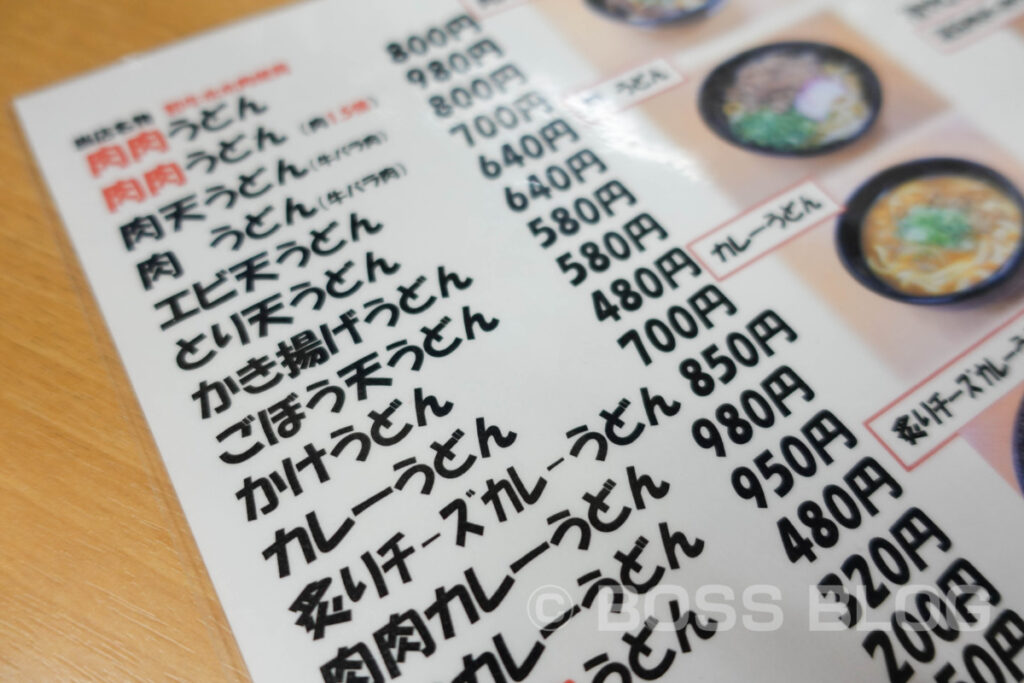 肉肉うどん 800円
肉肉うどん (肉1.5倍) 980円
肉天うどん(牛バラ肉) 800円
肉 うどん(牛バラ肉) 700円
エビ天うどん 640円
とり天うどん 640円
かき揚げうどん 580円
ごぼう天うどん 580円
かけうどん 480円
カレーうどん 700円
炙りチーズカレーうどん 850円
肉肉カレーうどん 980円
カレーうどん 950円
うどん 480円
320円
200円
50円
うどん
カレーうどん
炙りチーズカレー
© BOSS BLOG